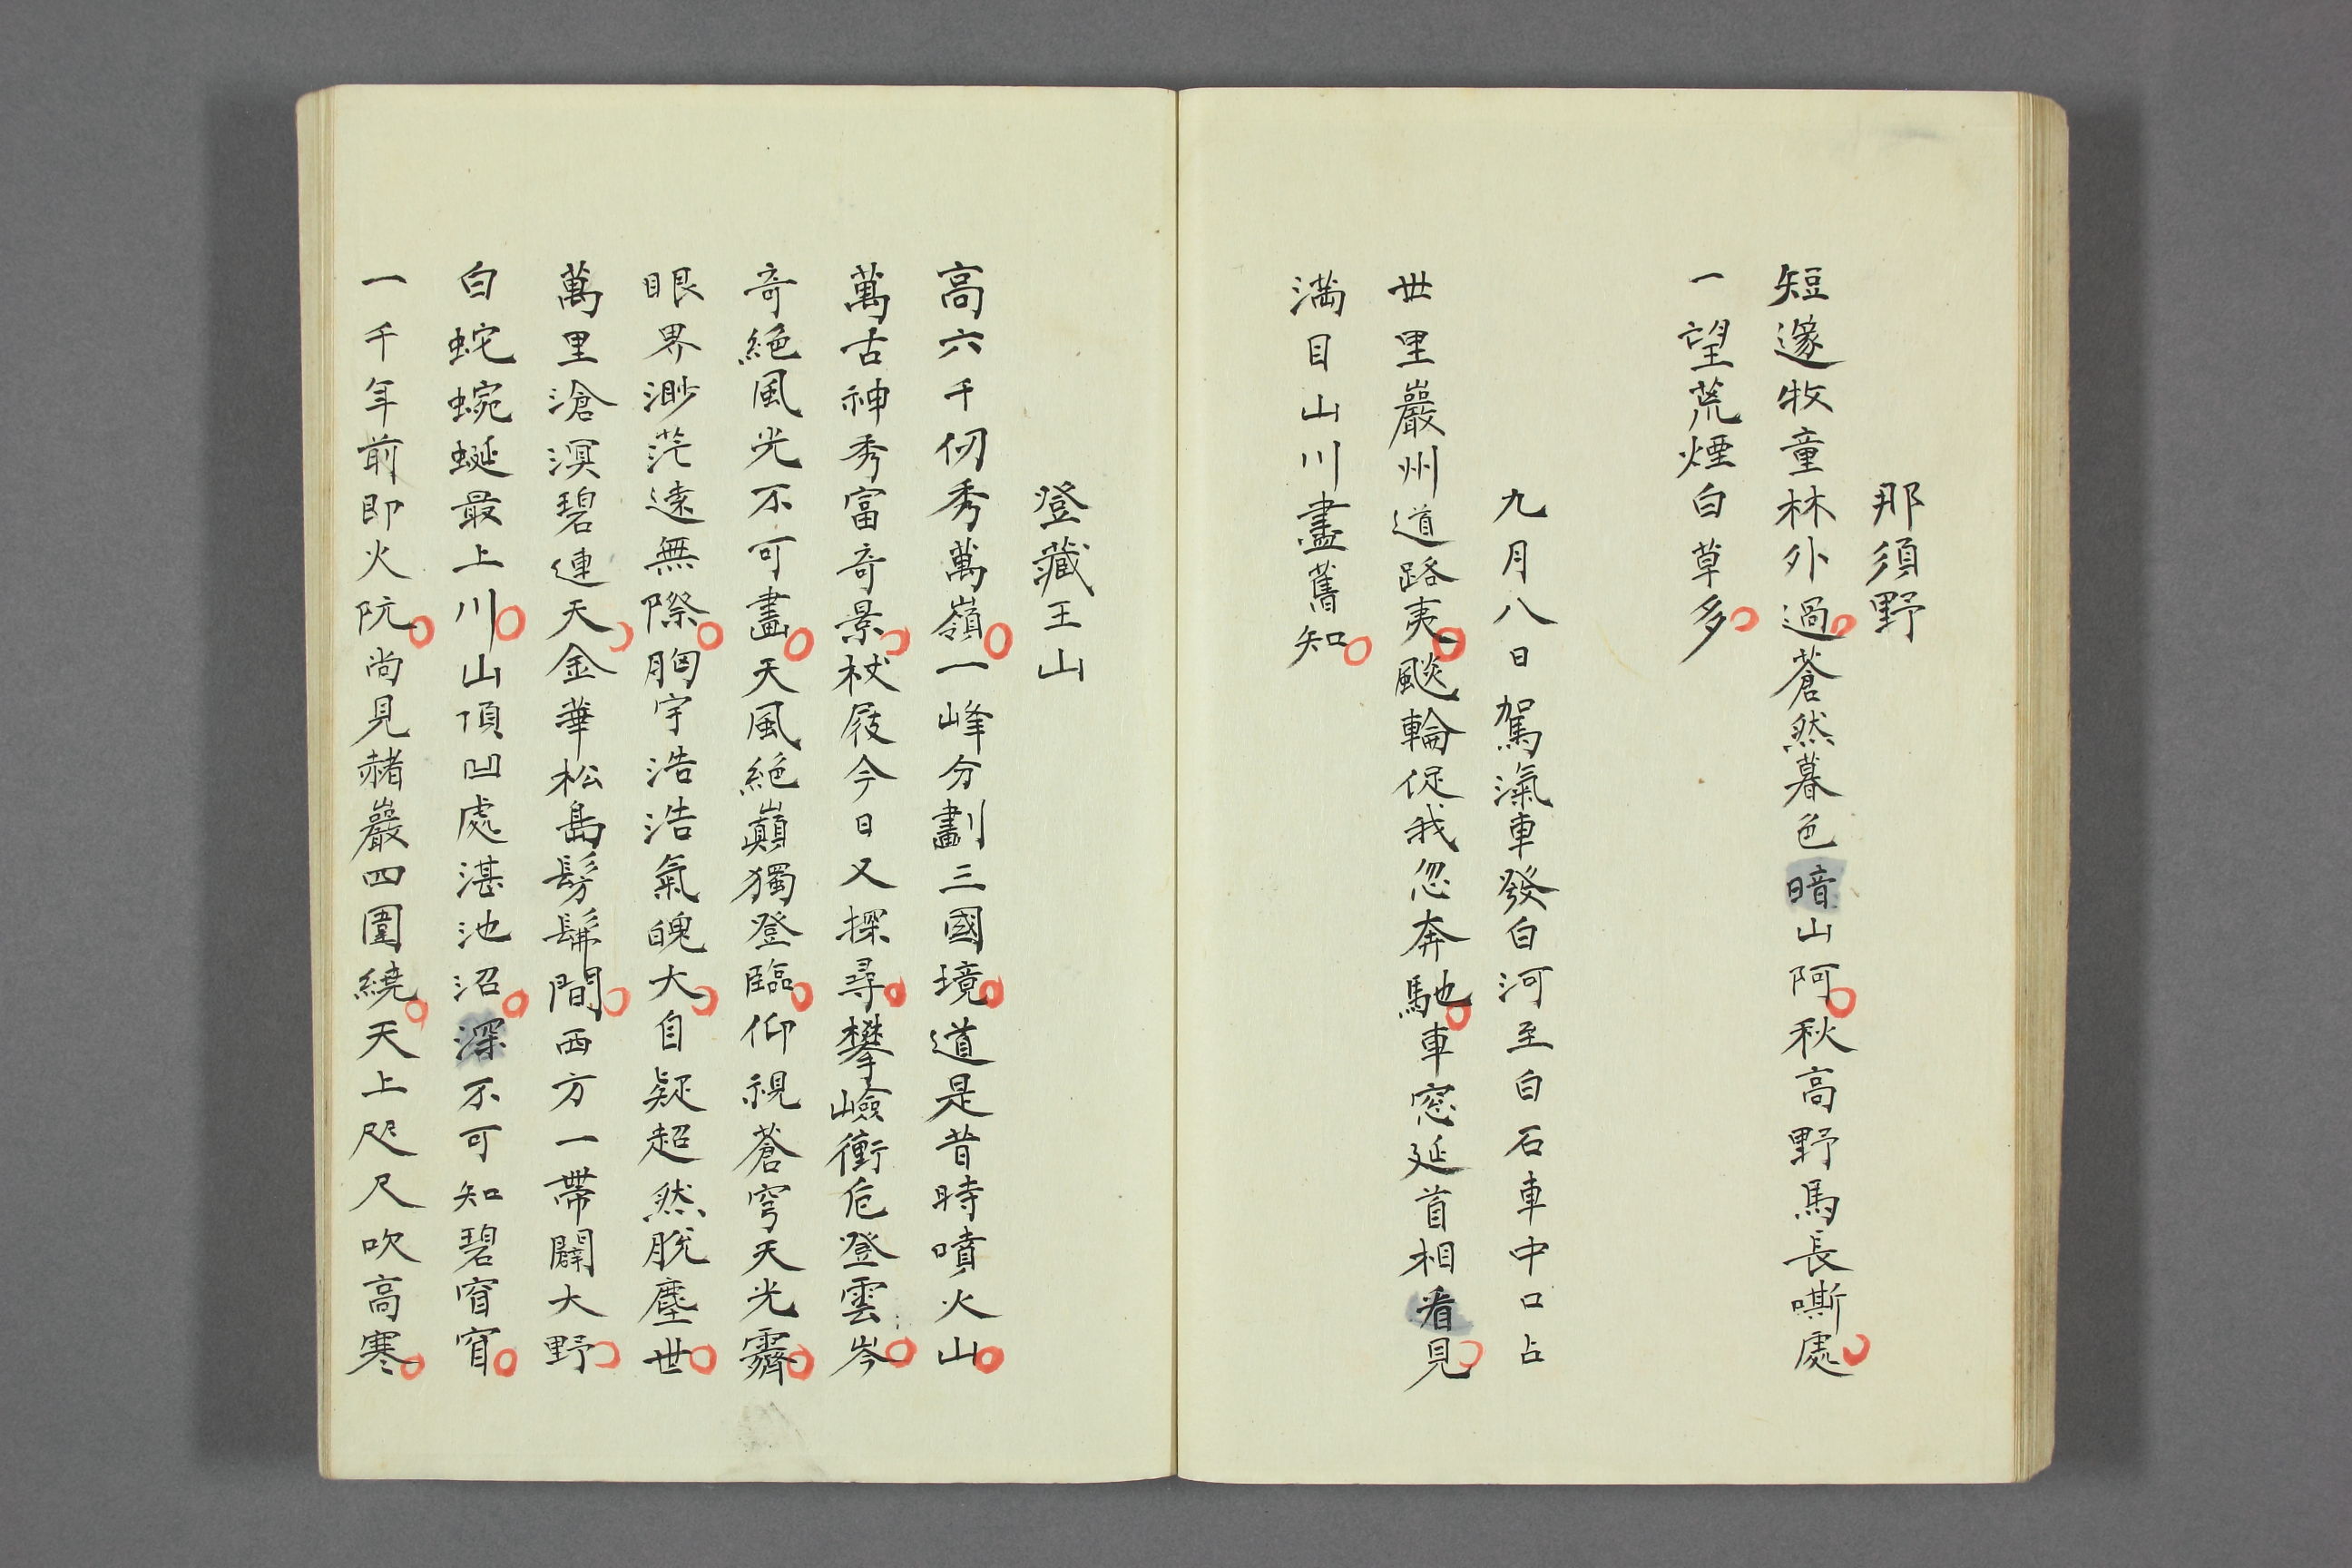 那須野
短邃牧童林外過蒼然暮色暗山阿秋高野馬長嘶處
一望荒煙白草多
九月八日駕瀛車發白河至白石車中口占
卅里巖州道路夷飈輪促我忽奔馳車窓延首相看見
満目山川盡舊知
登藏王山
高六千仞秀萬嶺一峰分劃三國境道是昔時噴火山
萬古神秀富奇景杖屐今日又探尋攀嶮衝危登雲岑
奇絶風光不可畫天風絶巓獨登臨仰視蒼穹天光霽
眼界渺茫遠無際胸宇浩浩氣魄大自疑超然脱塵世
萬里滄溟碧連天金華松島髣髴間西方一帶闢大野
白蛇蜿蜒最上川山頂凹處湛池沼深不可知碧窅窅
一千年前即火阬尚見赭巖四圍繞天上咫尺吹高寒